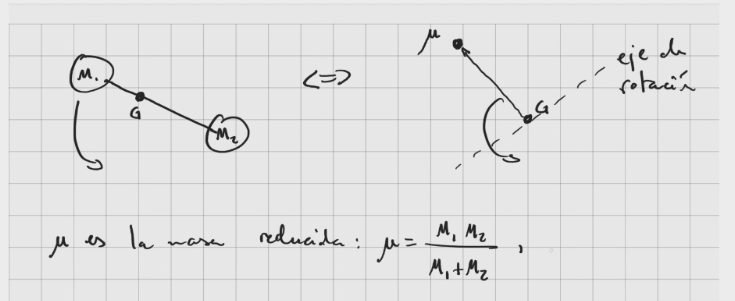 M₁
G
M₂
<=>
μ
G
eje de
rotación
μ es la masa reducida: μ = M₁ M₂ / M₁+M₂ ,